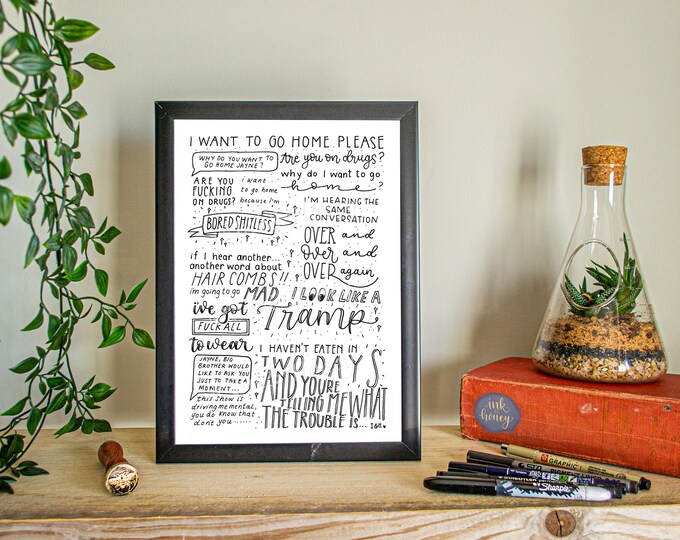 I WANT TO GO HOME PLEASE
WHY DO YOU WANT TO
GO HOME JAYNE?
Are you on drugs?
why do I want to go
home?
ARE YOU
FUCKING
ON DRUGS?
i want
to go home
because I'm
BORED SHITLESS
I'M HEARING THE
SAME
CONVERSATION
OVER and
Over and
OVER again
if I hear another...
another word about
HAIR COMBS!!
i'm going to go MAD.
I LOOK LIKE A
Tramp
i've got
FUCK ALL
to wear
I HAVEN'T EATEN IN
TWO DAYS
AND YOU'RE
TELLING ME WHAT
THE TROUBLE IS...
JAYNE, BIG
BROTHER WOULD
LIKE TO ASK YOU
JUST TO TAKE A
MOMENT...
this show is
driving me mental,
you do know that
don't you......
ink
honey
GRAPHIC
Sharpie